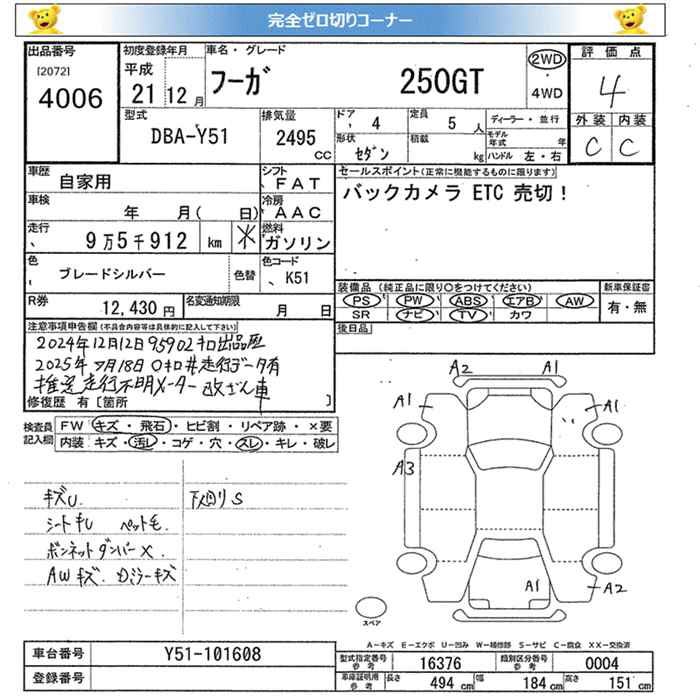 完全ゼロ切りコーナー
出品番号 初度登録年月 車名・グレード 2WD 評価点
[2072] 平成 フーガ 250GT ・ 4
4006 21 12月 4WD
型式 排気量 ドア 4 定員 5人 ディーラー・並行 外装 内装
DBA-Y51 2495cc 形状 セダン 積載 kg モデル年式 年 C C
ハンドル 左・右
車歴 自家用 シフト FAT セールスポイント(正常に機能するものに限ります)
車検 年 月( 日) 冷房 AAC バックカメラ ETC 売切!
走行 9万5千912 km 燃料 ガソリン
色 ブレードシルバー 色替 色コード K51
装備品 (純正品に限り○をつけてください) 新車保証書
R券 12,430円 名変通知期限 月 日 PS PW ABS エアB AW 有・無
SR ナビ TV カワ
注意事項申告欄(不具合内容等は具体的に記入して下さい) 後日品
2024年12月12日95902キロ出品歴
2025年 月18日0キロ#走行データ有
推定走行不明メーター改ざん車
修復歴 有〔箇所 〕
検査員記入欄 FW キズ・飛石・ヒビ割・リペア跡・×要
内装 キズ・汚レ・コゲ・穴・スレ・キレ・破レ
A2 A1
A1 A1
A3
A1 A2
キズU. 下回りS
シートキレ ペット毛.
ボンネットダンパーX
AWキズ. ドミラーキズ
スペア
A-キズ E-エクボ U-凹み W-補修跡 S-サビ C-腐食 XX-交換済
車台番号 Y51-101608 型式指定番号 参考 16376 類別区分番号 参考 0004
登録番号 車庫証明用 参考 長さ 494cm 幅 184cm 高さ 151cm